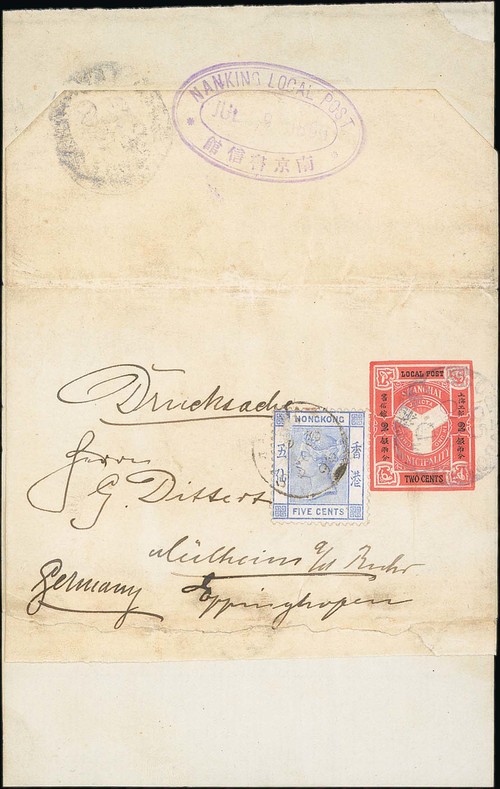 NANKING LOCAL POST
JUL 9
南京書信館
Drucksache
Herrn
G. Dittert
Mülheim a/d Ruhr
Eppinghofen
Germany
HONGKONG
香港
五仙
FIVE CENTS
LOCAL POST
SHANGHAI
MUNICIPALITY
上海工部
書信館
TWO CENTS